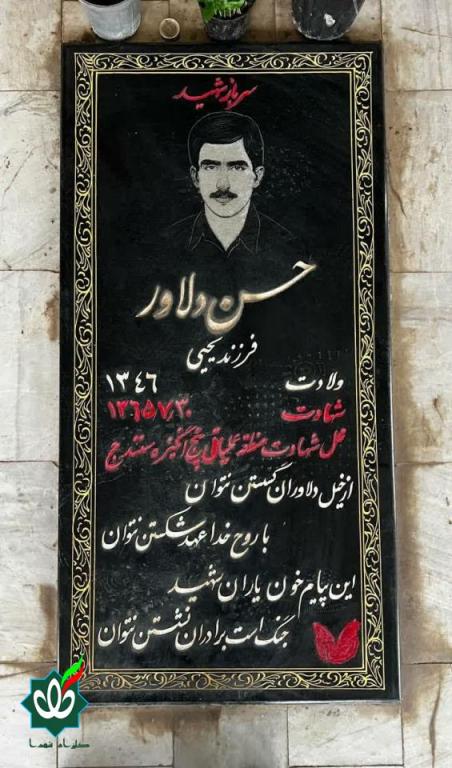 سرباز شهید
حسن دلاور
فرزند یحیی
ولادت ۱۳۴۶
شهادت ۱۳۶۵/۷/۳۰
محل شهادت منطقه عملیاتی پنج انگشته سنندج
از خیل دلاوران گسستن نتوان
با روح خدا عهد شکستن نتوان
این پیام خون یاران شهید
جنگ است برادران نشستن نتوان
گلزار شهدا